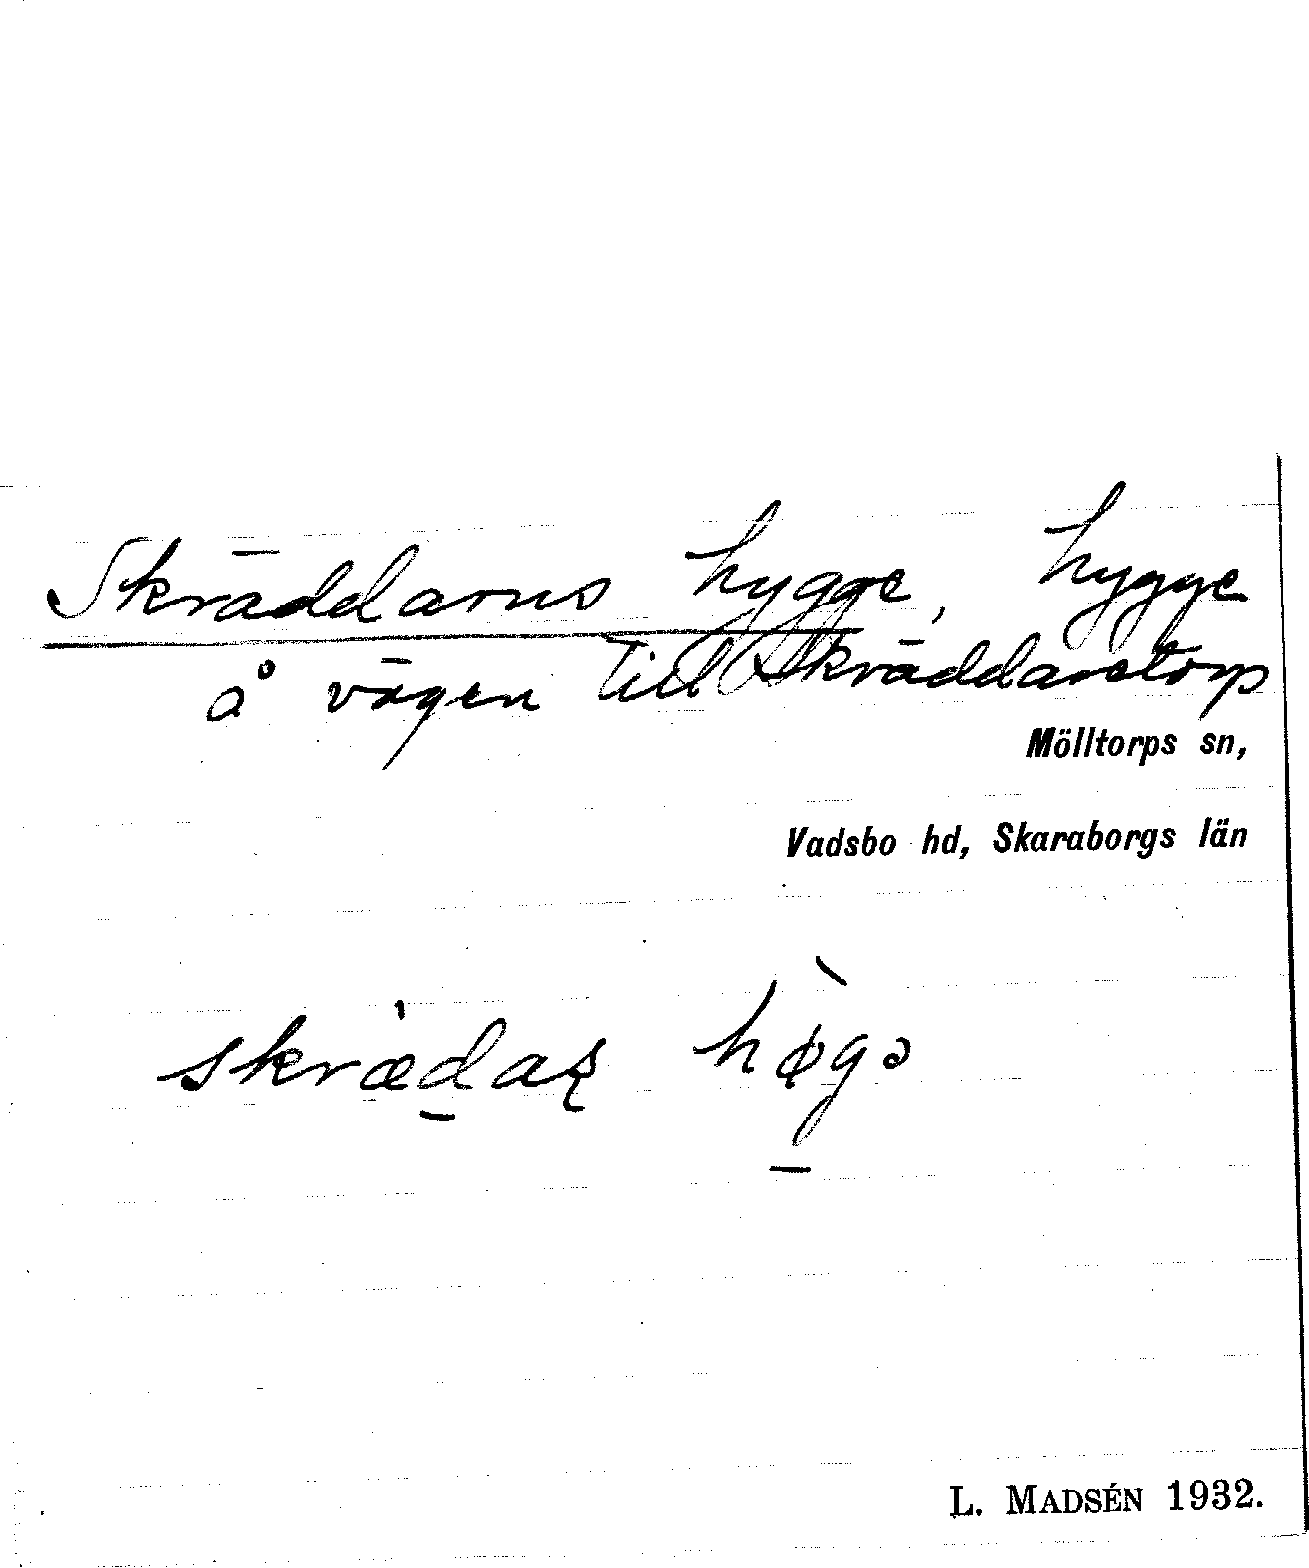 Skräddarns hygge, hygge
å vägen till Skräddaretorp
Mölltorps sn,
Vadsbo hd, Skaraborgs län
skræ̀daʂ hø̀gə
L. MADSÉN 1932.